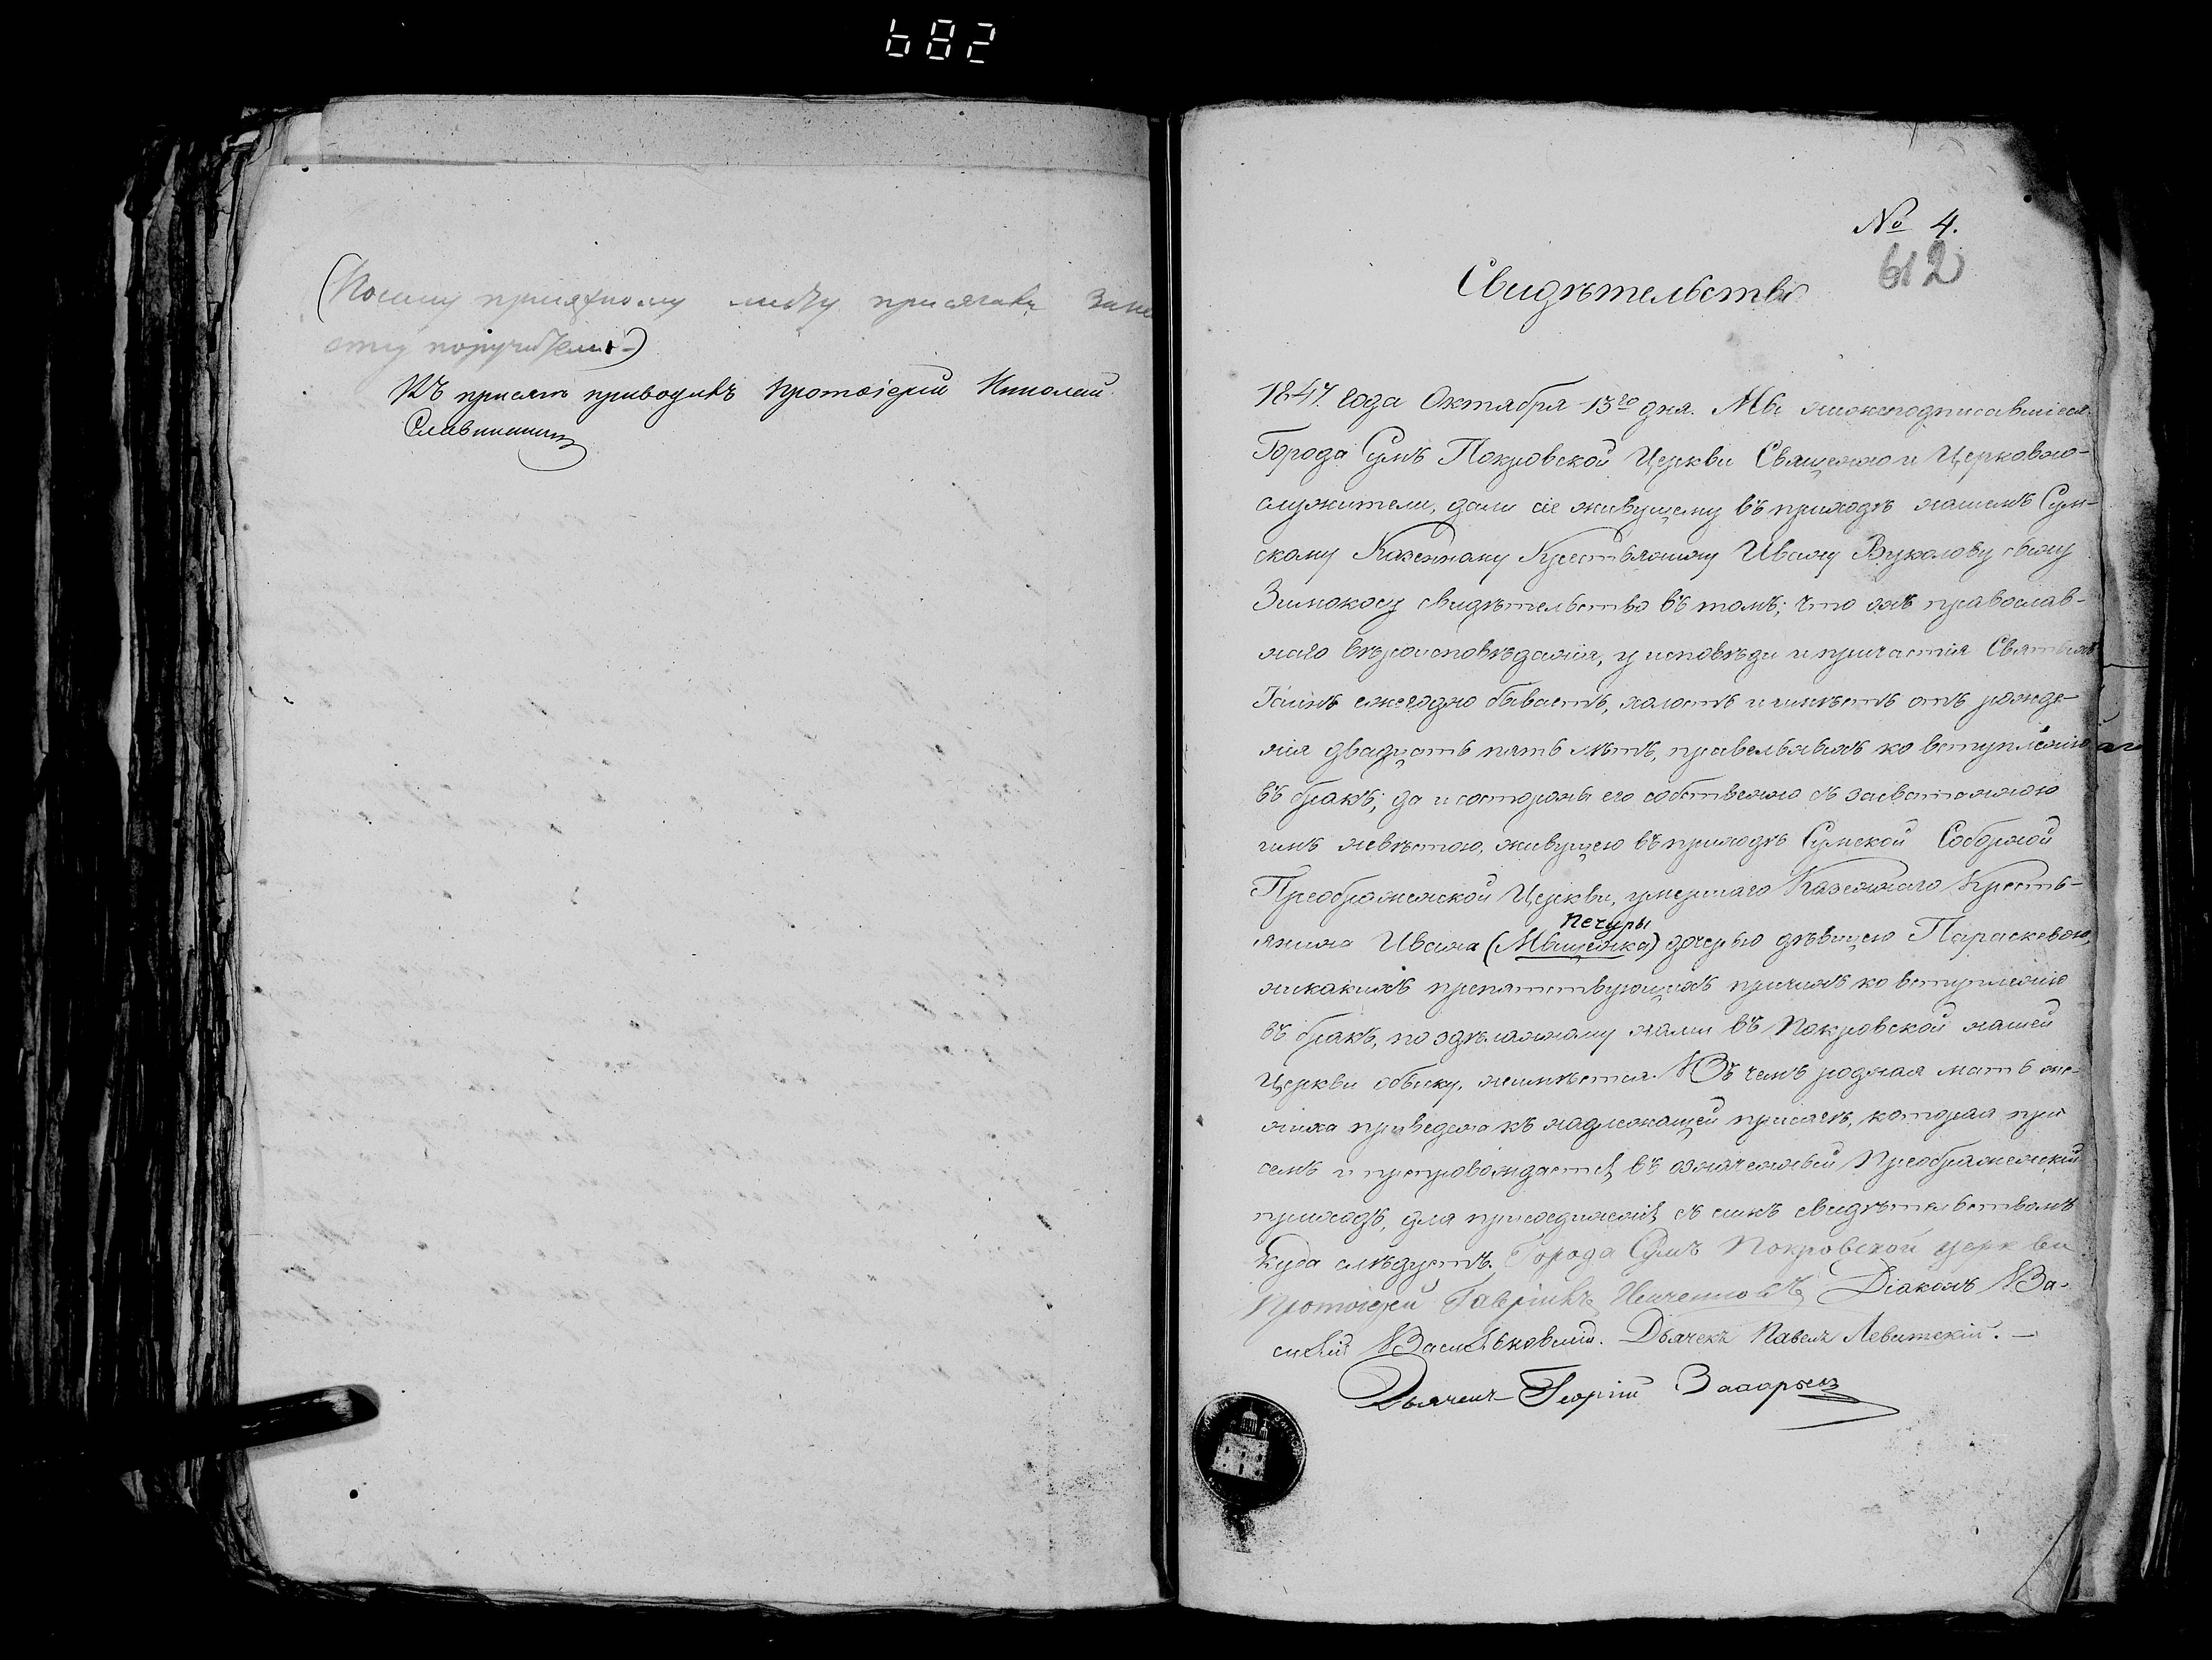 682
(По сему присяжному листу присягалъ
вмѣсто поручителя)
Къ присягѣ приводилъ Протоіерей Николай
№ 4.
612
Свидѣтельство
1847. года Октября 13го дня. Мы нижеподписавшіеся
Города Сумъ Покровской Церкви Священно и Церковно-
служители, дали сіе живущему въ приходѣ нашемъ Сум-
скому Казенному Крестьянину Ивану Вуколову сыну
Зимокосу свидѣтельство въ томъ; что онъ православ-
наго вѣроисповѣданія, у исповѣди и причастія Святыхъ
Таинъ ежегодно бываетъ, холостъ и имѣетъ отъ рожде-
нія двадцать пять лѣтъ, правельныхъ ко вступленію
въ бракъ; да и состороны его собственно съ засватанною
имъ невѣстою, живущею въ приходѣ Сумской Соборной
Преображенской Церкви, умершаго Казеннаго Кресть-
Печуры
янина Ивана (Мыщенка) дочерью дѣвицею Параскевою,
никакихъ препятствующихъ причинъ ко вступленію
въ бракъ, по здѣланному нами въ Покровской нашей
Церкви обыску, неимѣется. Въ чемъ родная мать же-
ниха приведена къ надлежащей присягѣ, которая при
семъ и препровождается въ означенный Преображенскій
приходъ, для присоединенія съ симъ свидѣтельствомъ
куда слѣдуетъ. Города Сумъ Покровской церкви
Протоіерей Гавріилъ Діаконъ Ва-
силій Васильковскій. Дьячекъ Павелъ Левитскій. —
Дьячекъ Георгій